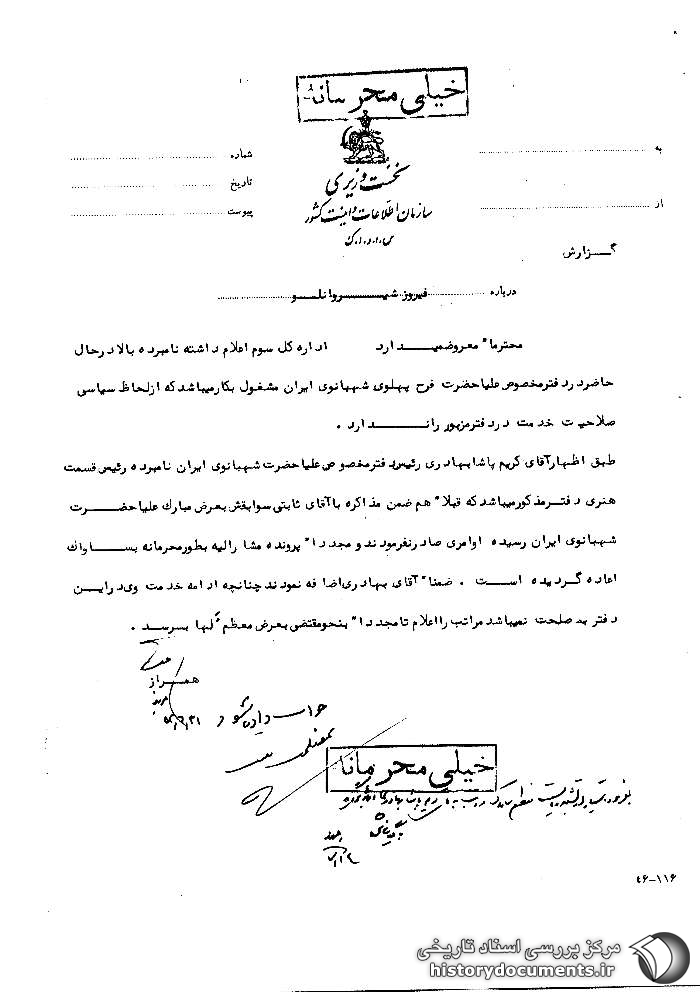 خیلی محرمانه
نخست وزیری
سازمان اطلاعات و امنیت کشور
س.ا.و.ا.ک
به
از
شماره
تاریخ
پیوست
گزارش
درباره فیروز شیروانلو
محترما" معروضمیدارد اداره کل سوم اعلام داشته نامبرده بالا در حال
حاضر در دفتر مخصوص علیاحضرت فرح پهلوی شهبانوی ایران مشغول بکار میباشد که از لحاظ سیاسی
صلاحیت خدمت در دفتر مزبور را ندارد .
طبق اظهار آقای کریم پاشا بهادری رئیس دفتر مخصوص علیاحضرت شهبانوی ایران نامبرده رئیس قسمت
هنری دفتر مذکور میباشد که قبلا" هم ضمن مذاکره با آقای ثابتی سوابقش بعرض مبارک علیاحضرت
شهبانوی ایران رسیده اوامری صادر نفرمودند و مجددا" پرونده مشارالیه بطور محرمانه بساواک
اعاده گردیده است . ضمنا" آقای بهادری اضافه نمودند چنانچه ادامه خدمت وی در این
دفتر بصلحت نمیباشد مراتب را اعلام تا مجددا" بنحو مقتضی بعرض معظم لها برسد .
همراز
جواب داده شود
خیلی محرمانه
۴۶-۱۱۶
مرکز بررسی اسناد تاریخی
historydocuments.ir